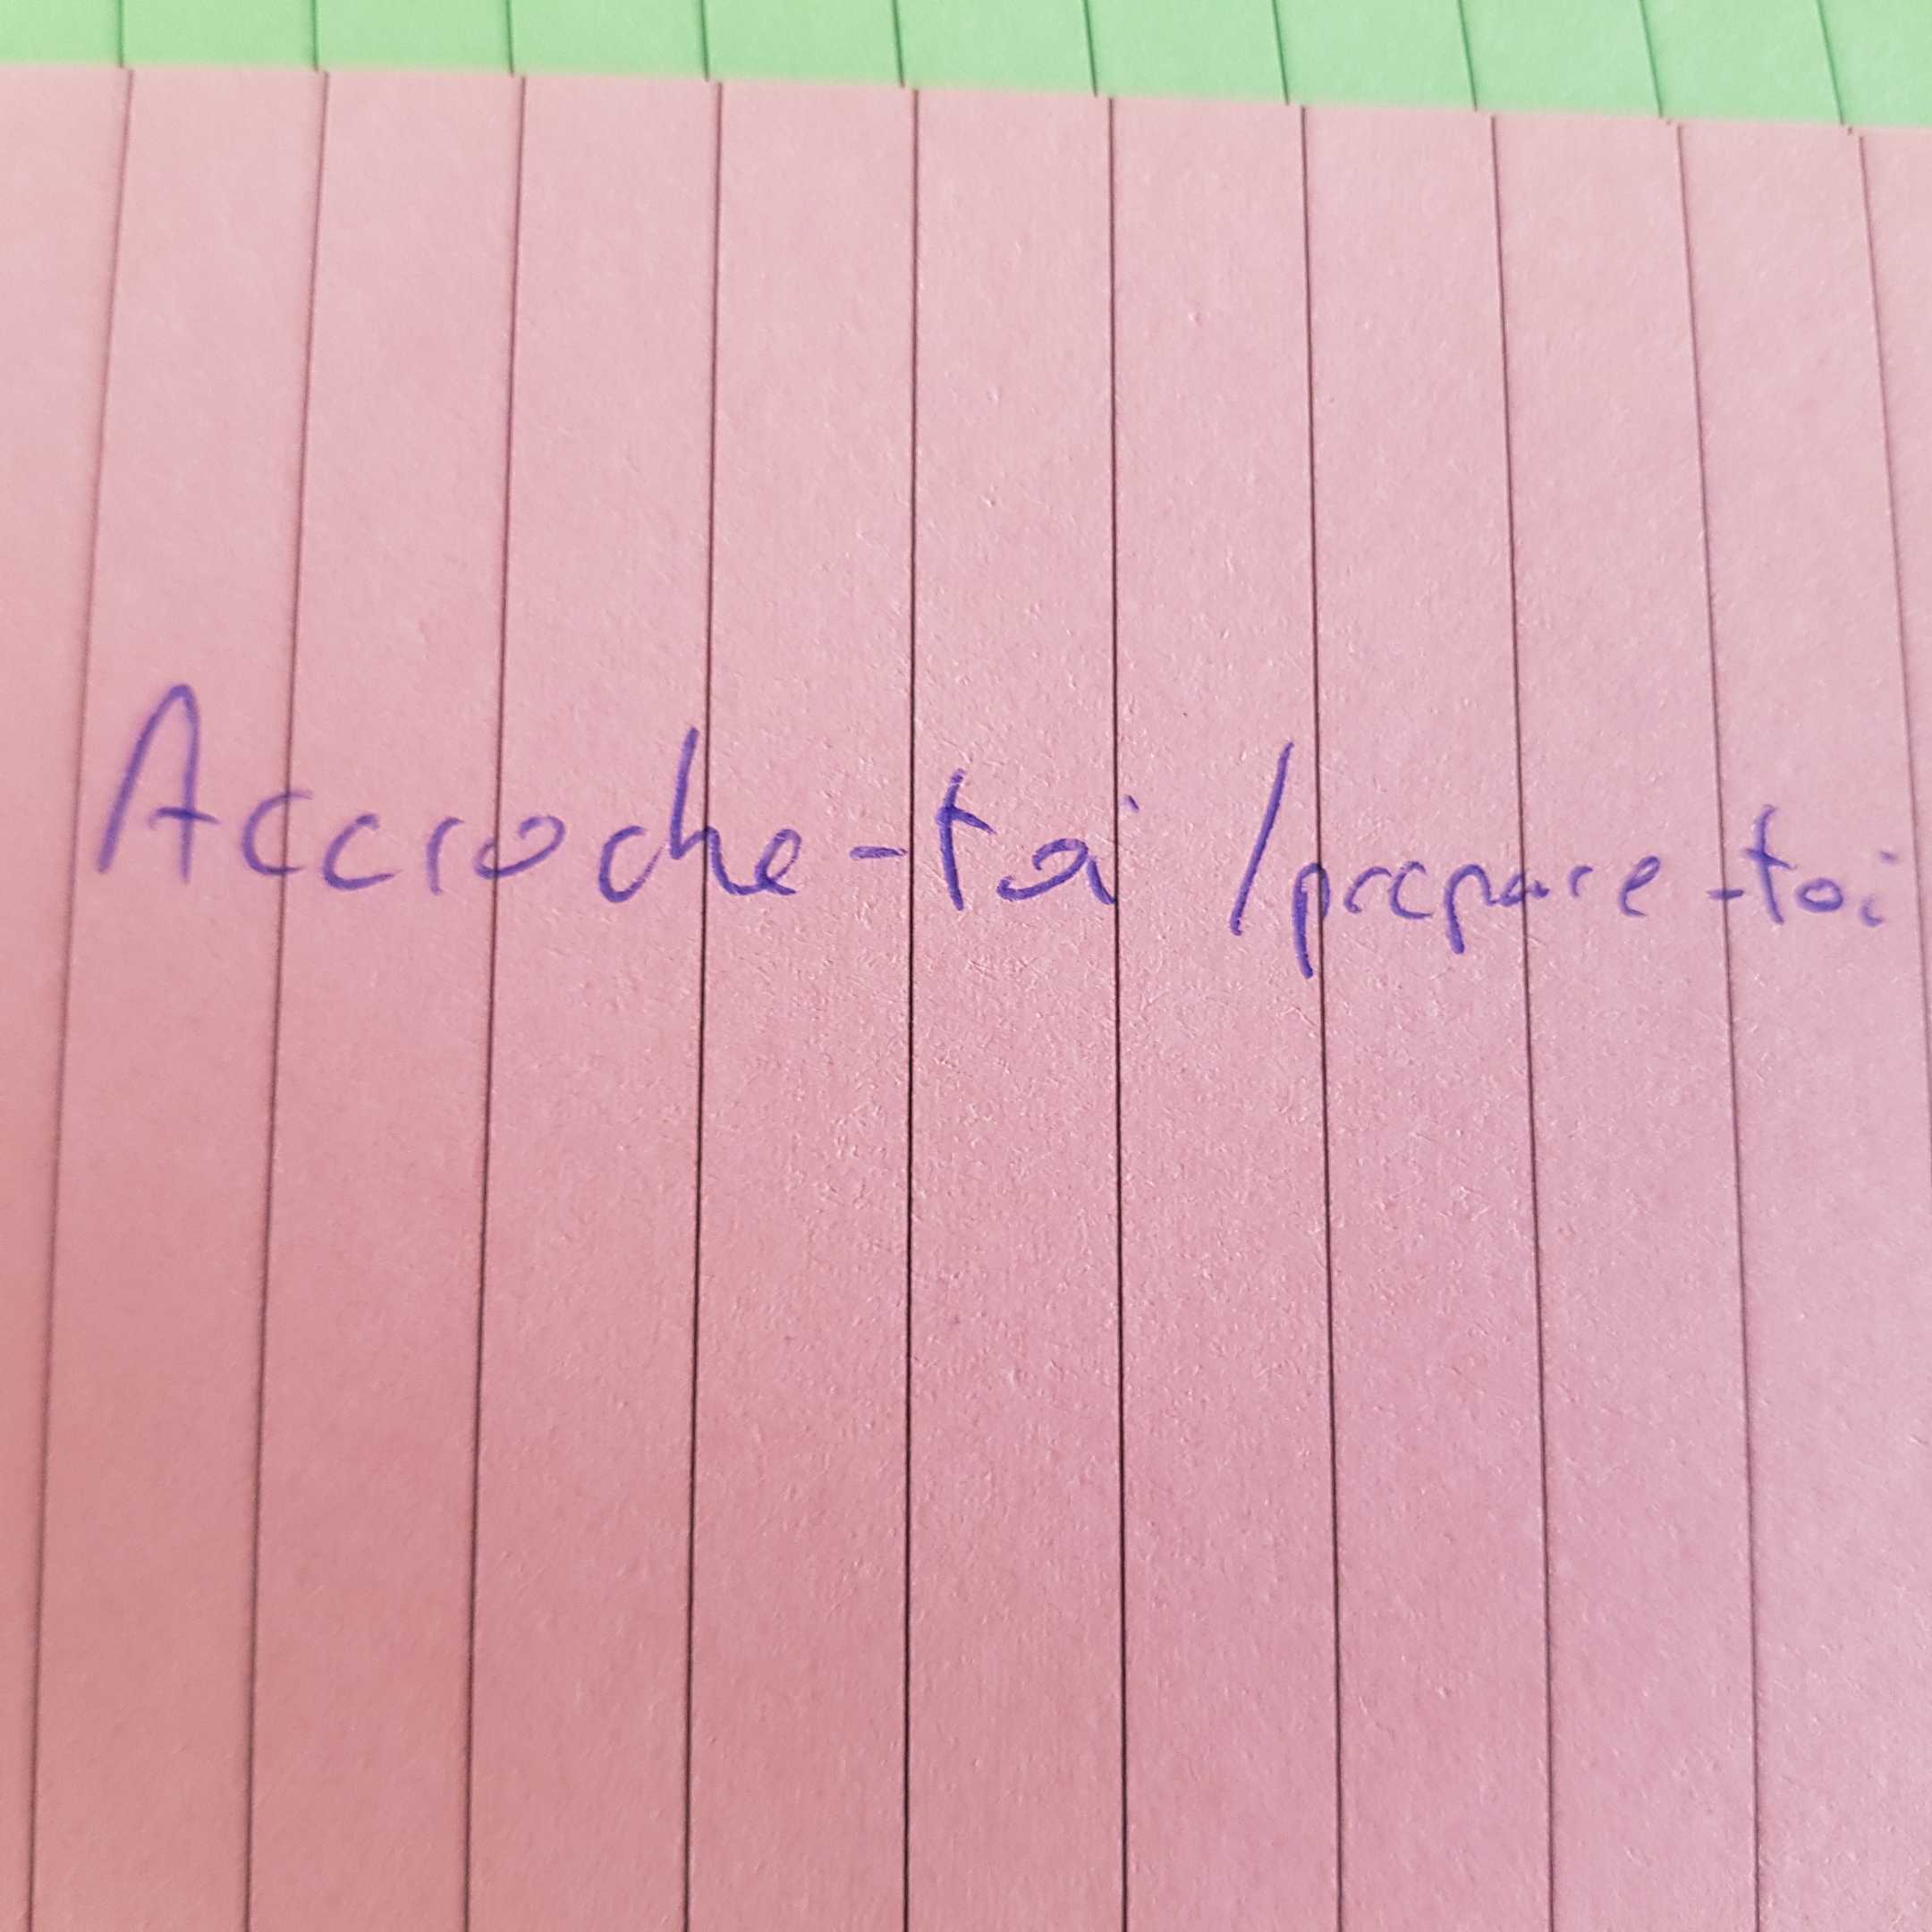 Accroche-toi /prepare-toi